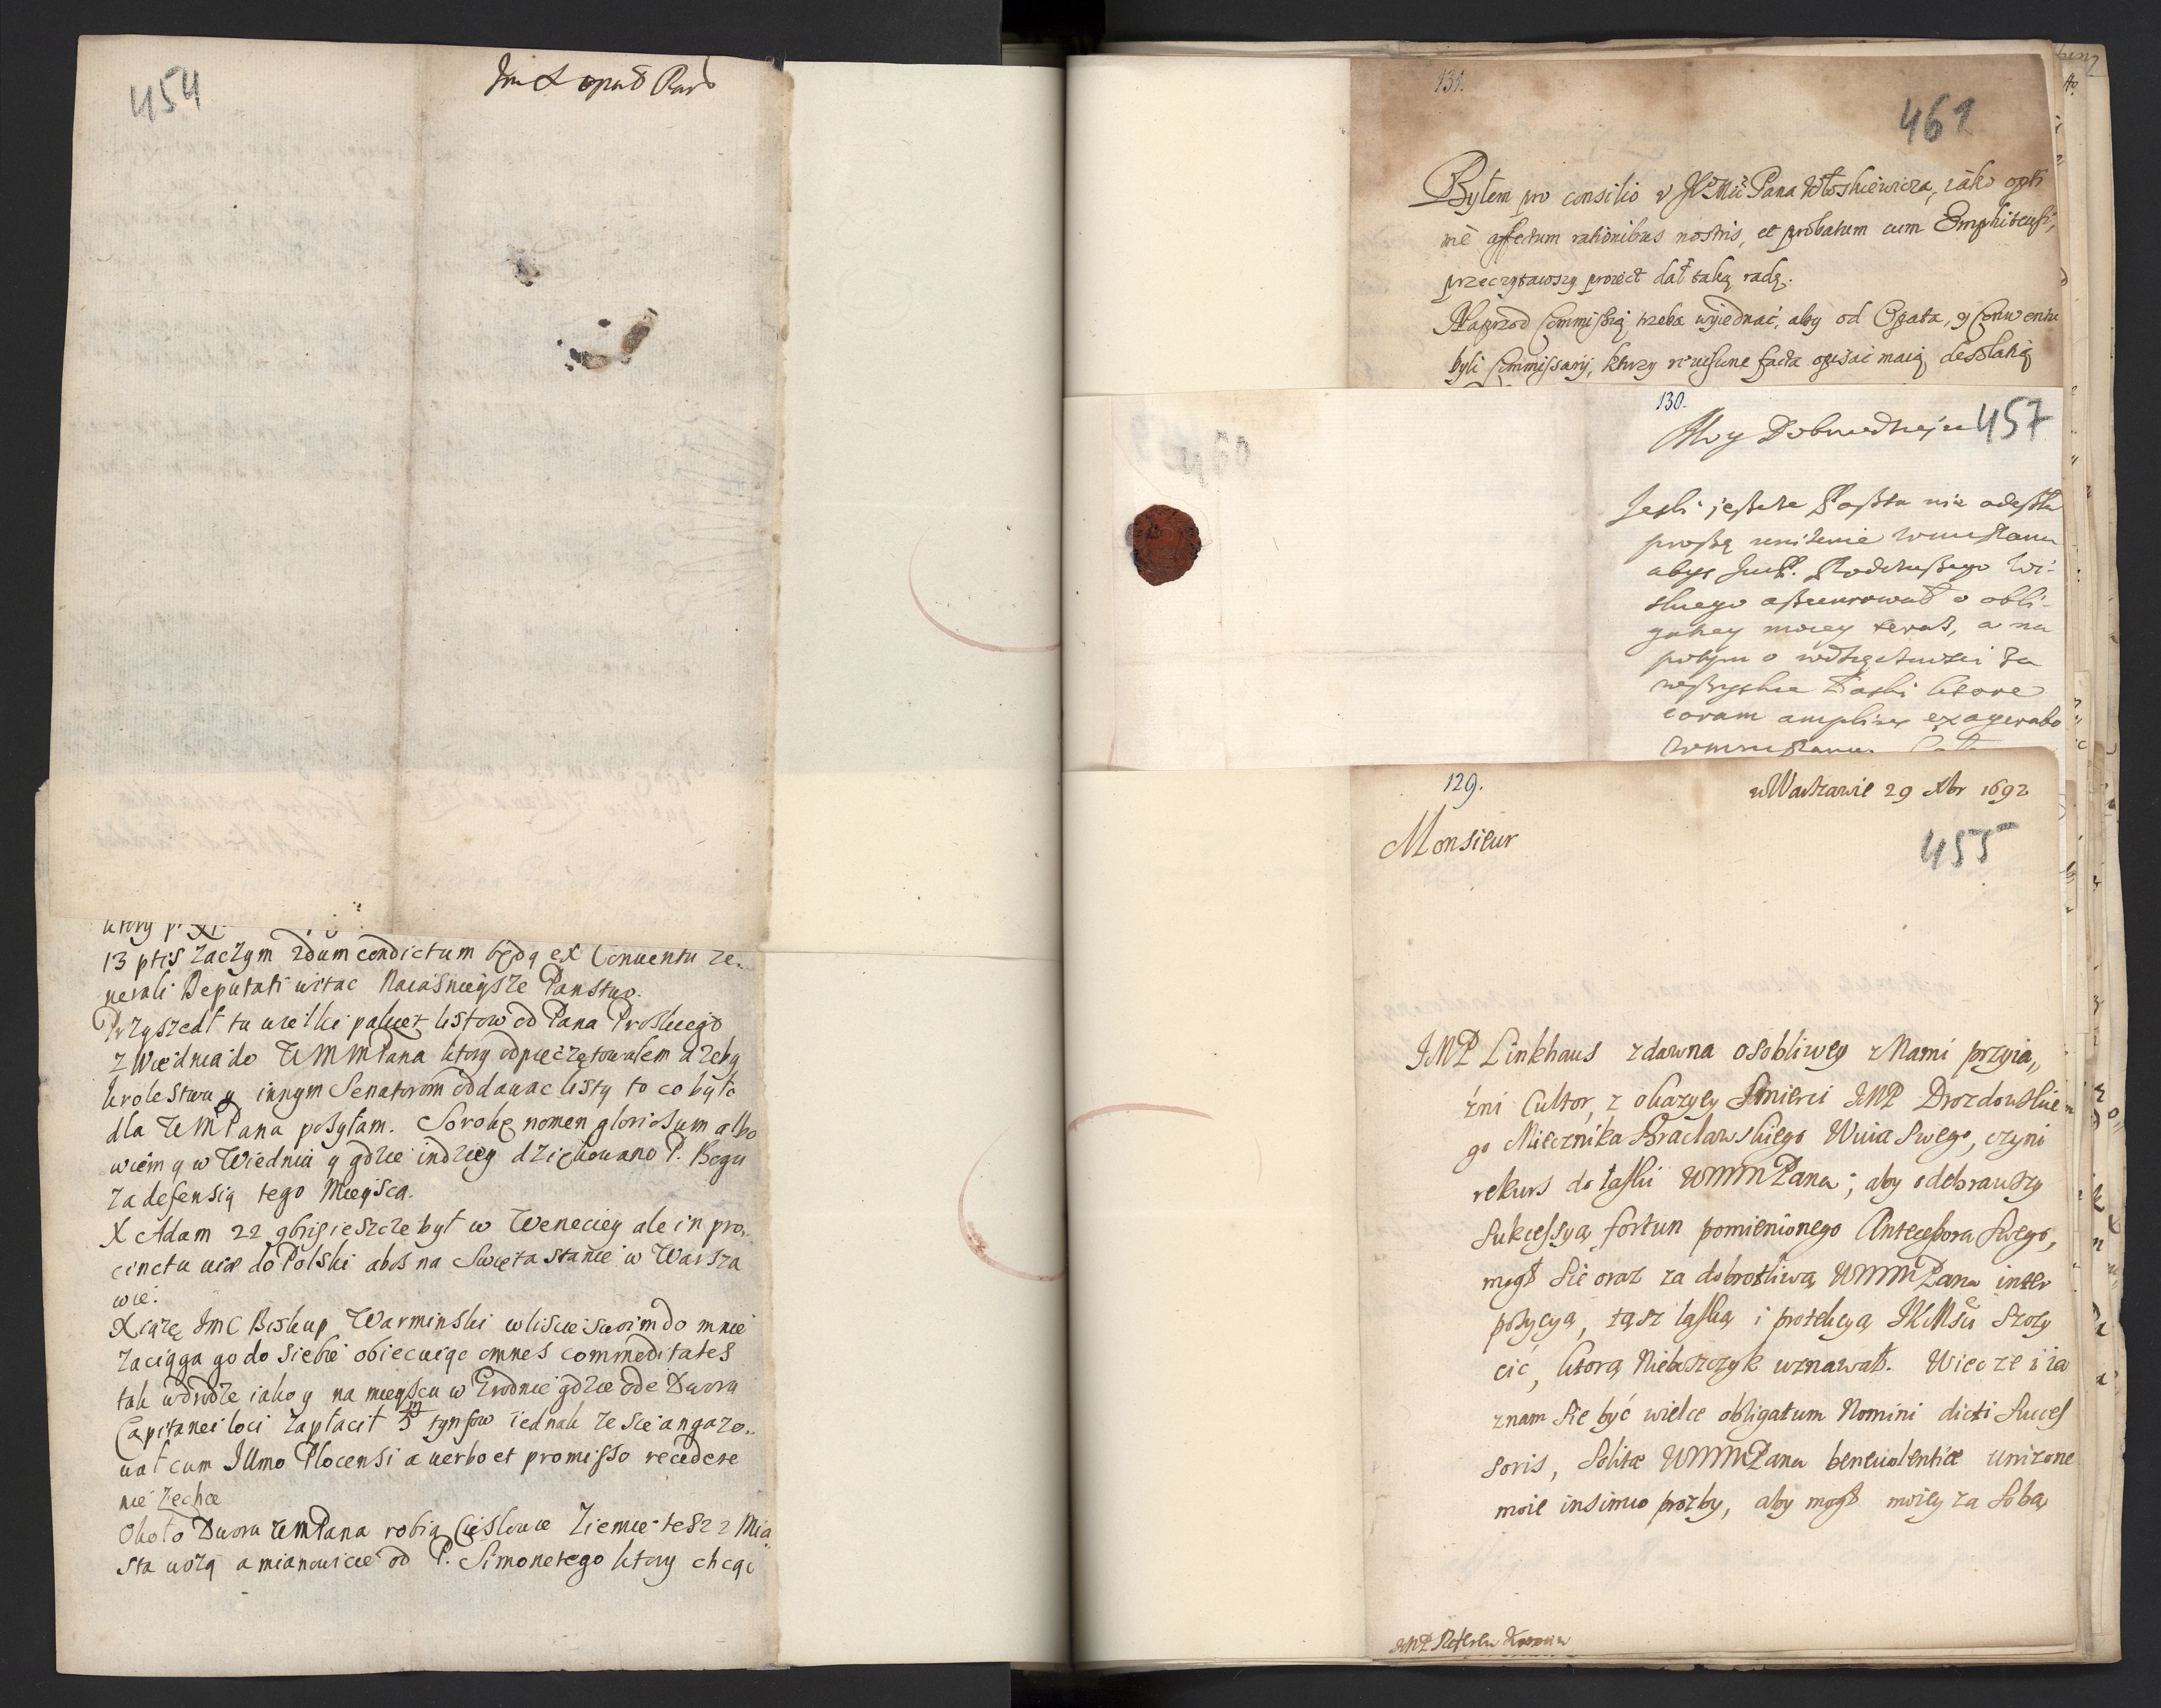 454
13 ptis zaczym 2dum condictum będą ex Conventu Ze-
nerali Deputati witac Naiasnieysze Panstwo.
Przyszedł tu wielki pakiet listow od Pana Proskiego
z Wiednia do WMMPana ktory odpieczętowałem a zeby
krolestwu y innym Senatorom oddawac listy to co było
dla WMPana posyłam. Sorokę nomen gloriosum albo
wiem y w Wiedniu y gdzie indziey dziękowano P. Bogu
za defensią tego mieysca.
X Adam 22 gbris ieszcze był w Weneciey ale in pro..
cinctu uiæ do Polski abos na Swięta stanie w Warsza
wie.
Xiążę Jmc Biskup Warminski w liscie swoim do mnie
zaciąga go do siebie obiecuiąc omnes commoditates
tak w drodze iako y na mieyscu w Grodnie gdzie ode Dworu
Capitanei loci zapłacił 5 tynfow iednak ze sie angazo..
uał cum Illmo Plocensi a uerbo et promisso recedere
nie zechce
Około Dworu WMPana robią Cieslowie Ziemie tesz z Mia
sta wożą a mianowicie od P. Simonetego ktory chcąc
131.
461
Byłem pro consilio v Pana Włoskiewicza, iako opti
mè affectum rationibus nostris, et probatum cum Emphiteusi,
przeczytawszy proiect dał taką radę.
Naprzod Commissią trzeba wyiednać, aby od Opata, y Conventu
byli Commissarij, ktorzy revisione facta opisać maią desolatią
130.
457
Moy Dobrodzieju
Jesli jeszcze Poszta nie odeszła
proszę unizenie
abys Podczaszego Wi-
skiego assecurował o obli-
gatiey moiey teraz, a na
potym o wdzięcznosci za
wszystkie Łaski ktore
coram amplius exagerabo
129.
w Warszawie 29 Xbr 1692
Monsieur
455
JMP Linkhaus zdawna osobliwey z Nami przyia,,
źni Cultor, z okazyey Smierci JMP Drozdowskie
go Miecznika Bracławskiego Wuia Swego, czyni
rekurs do łaski WMMPana; aby odebrawszy
Sukcessyą fortun pomienionego Antecessora Swego,
mogł Sie oraz za dobrotliwą WMMPana inter
pozycyą, tąsz łaską i protekcyą JKMści Szczy
cić, ktorą Niebszczyk uznawał. Wiec ze i ia
znam Sie być wielce obligatum Nomini dicti Succes
soris, Solitæ WMMPana benevolentiæ unizone
moie insinuo prozby, aby mogł moiey za Sobą